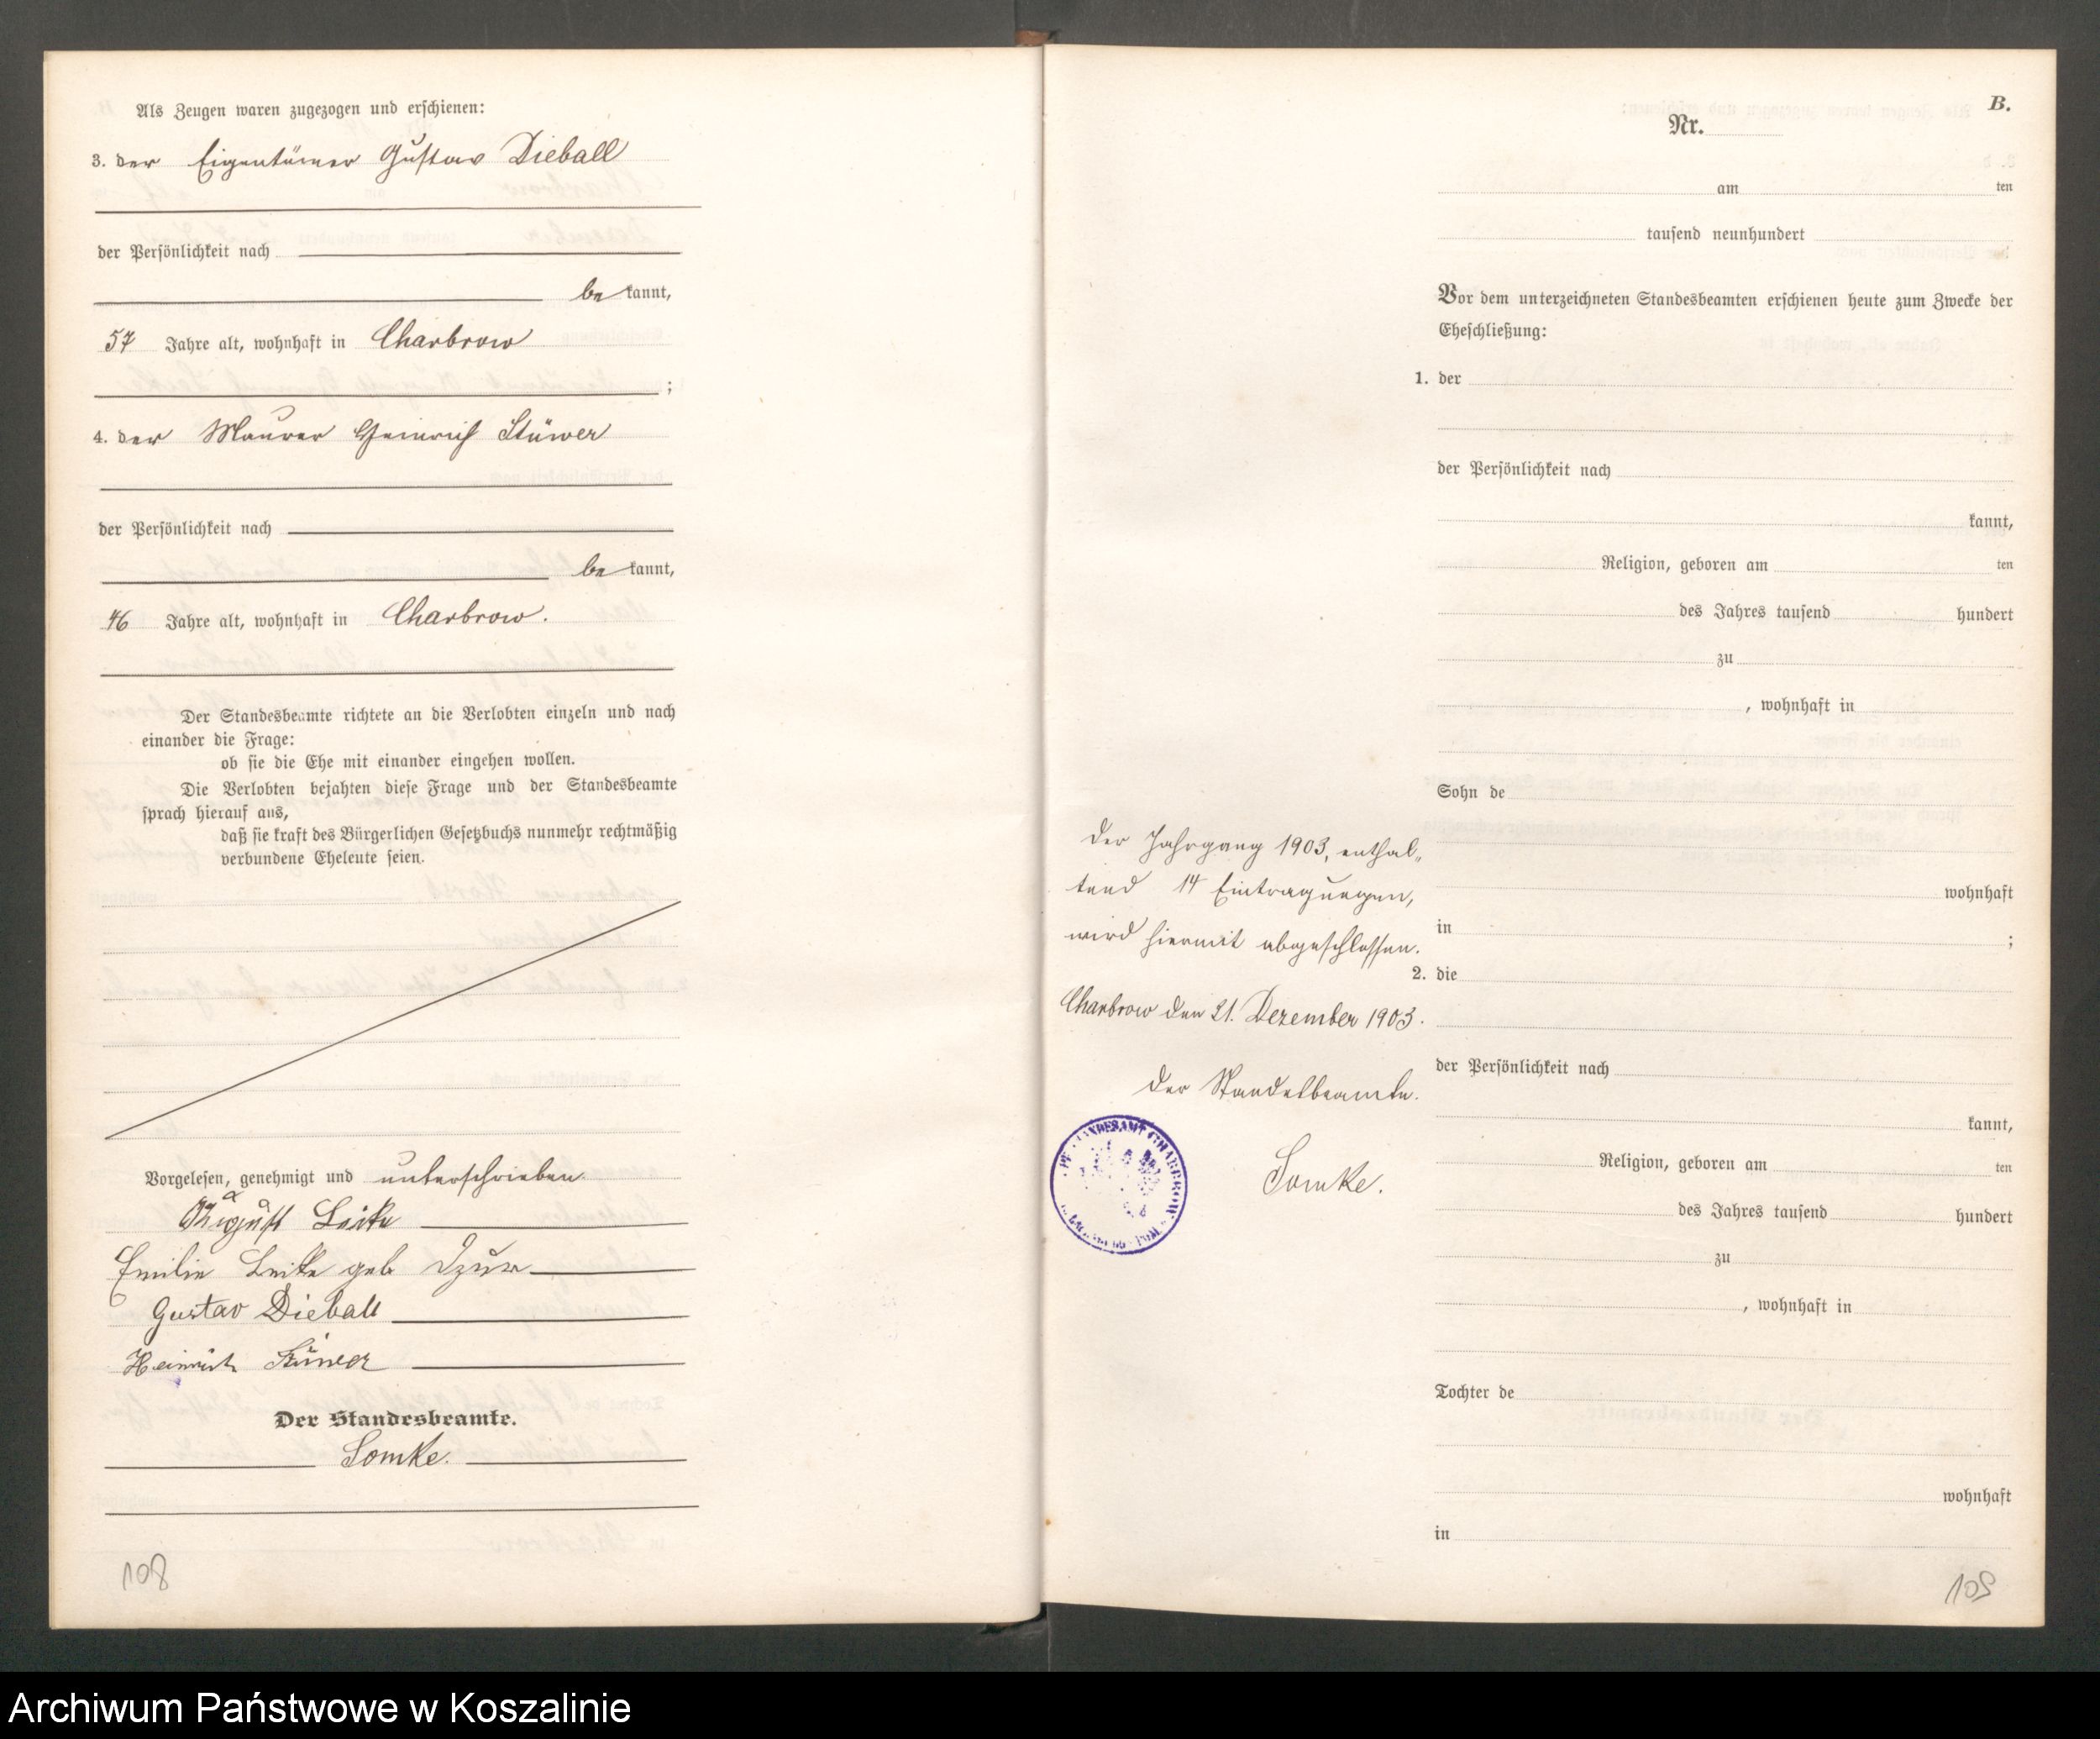 Als Zeugen waren zugezogen und erschienen:
3. der Eigentümer Gustav Dieball
der Persönlichkeit nach
be kannt,
57 Jahre alt, wohnhaft in Charbrow
;
4. der Maurer Heinrich Stüwer
der Persönlichkeit nach
be kannt,
46 Jahre alt, wohnhaft in Charbrow.
Der Standesbeamte richtete an die Verlobten einzeln und nach
einander die Frage:
ob sie die Ehe mit einander eingehen wollen.
Die Verlobten bejahten diese Frage und der Standesbeamte
sprach hierauf aus,
daß sie kraft des Bürgerlichen Gesetzbuchs nunmehr rechtmäßig
verbundene Eheleute seien.
Vorgelesen, genehmigt und unterschrieben.
August Leike
Emilie Leike geb
Gustav Dieball
Heinrich Stüwer
Der Standesbeamte.
Somke.
108
B.
Nr.
am ten
tausend neunhundert
Vor dem unterzeichneten Standesbeamten erschienen heute zum Zwecke der
Eheschließung:
1. der
der Persönlichkeit nach
kannt,
Religion, geboren am ten
des Jahres tausend hundert
zu
, wohnhaft in
Sohn de
wohnhaft
in ;
2. die
der Persönlichkeit nach
kannt,
Religion, geboren am ten
des Jahres tausend hundert
zu
, wohnhaft in
Tochter de
wohnhaft
in
Der Jahrgang 1903, enthal„
tend 14 Eintragungen,
wird hiermit abgeschlossen.
Charbrow den 21. Dezember 1903.
Der Standesbeamte.
Somke.
109
Archiwum Państwowe w Koszalinie